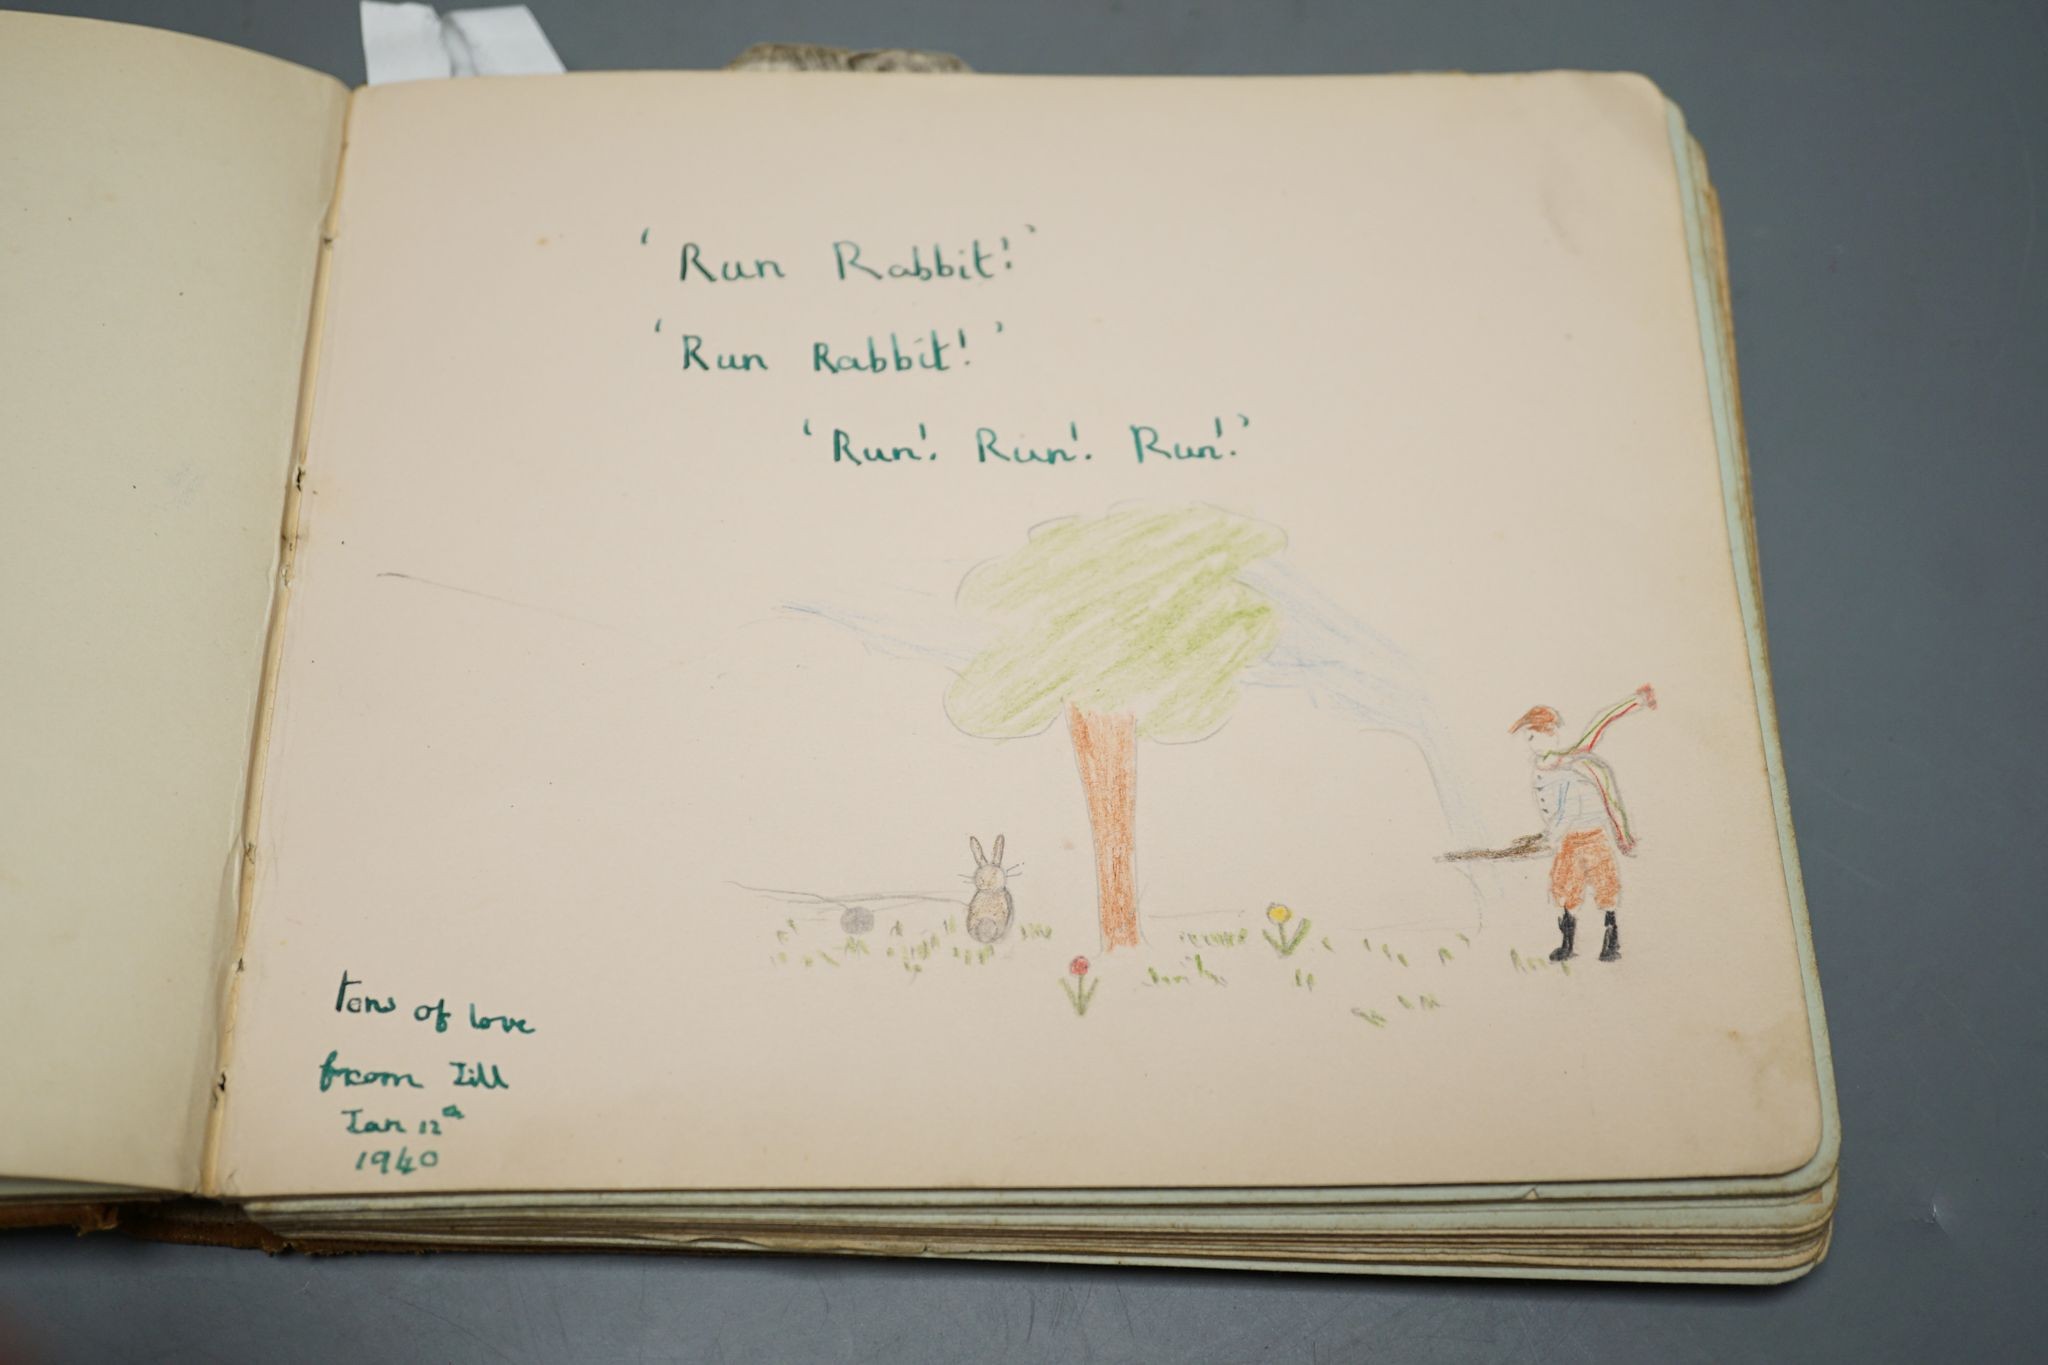 ‘Run Rabbit!’
‘Run Rabbit!’
‘Run! Run! Run!’
tons of love
from Jill
Jan 12th
1940